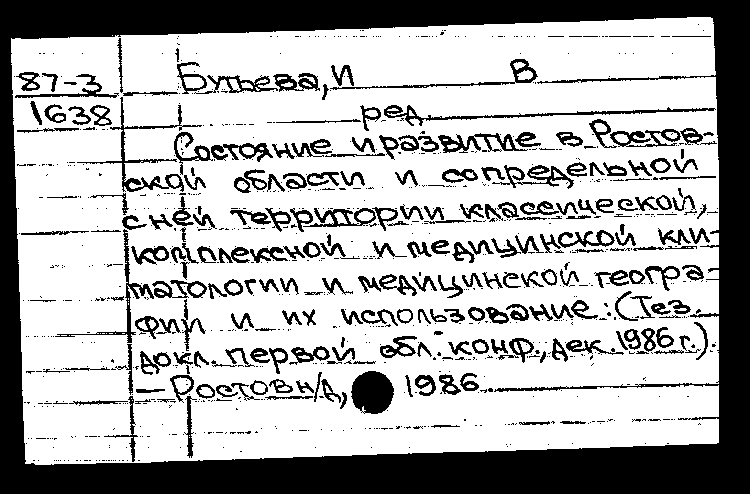 87-3 Бутьева, И В
1638 ред.
Состояние и развитие в Ростов-
ской области и сопредельной
с ней территории классической,
комплексной и медицинской кли-
матологии и медицинской геогра-
фии и их использование: (Тез.
докл. первой обл. конф., дек. 1986 г.).
— Ростов н/Д, 1986